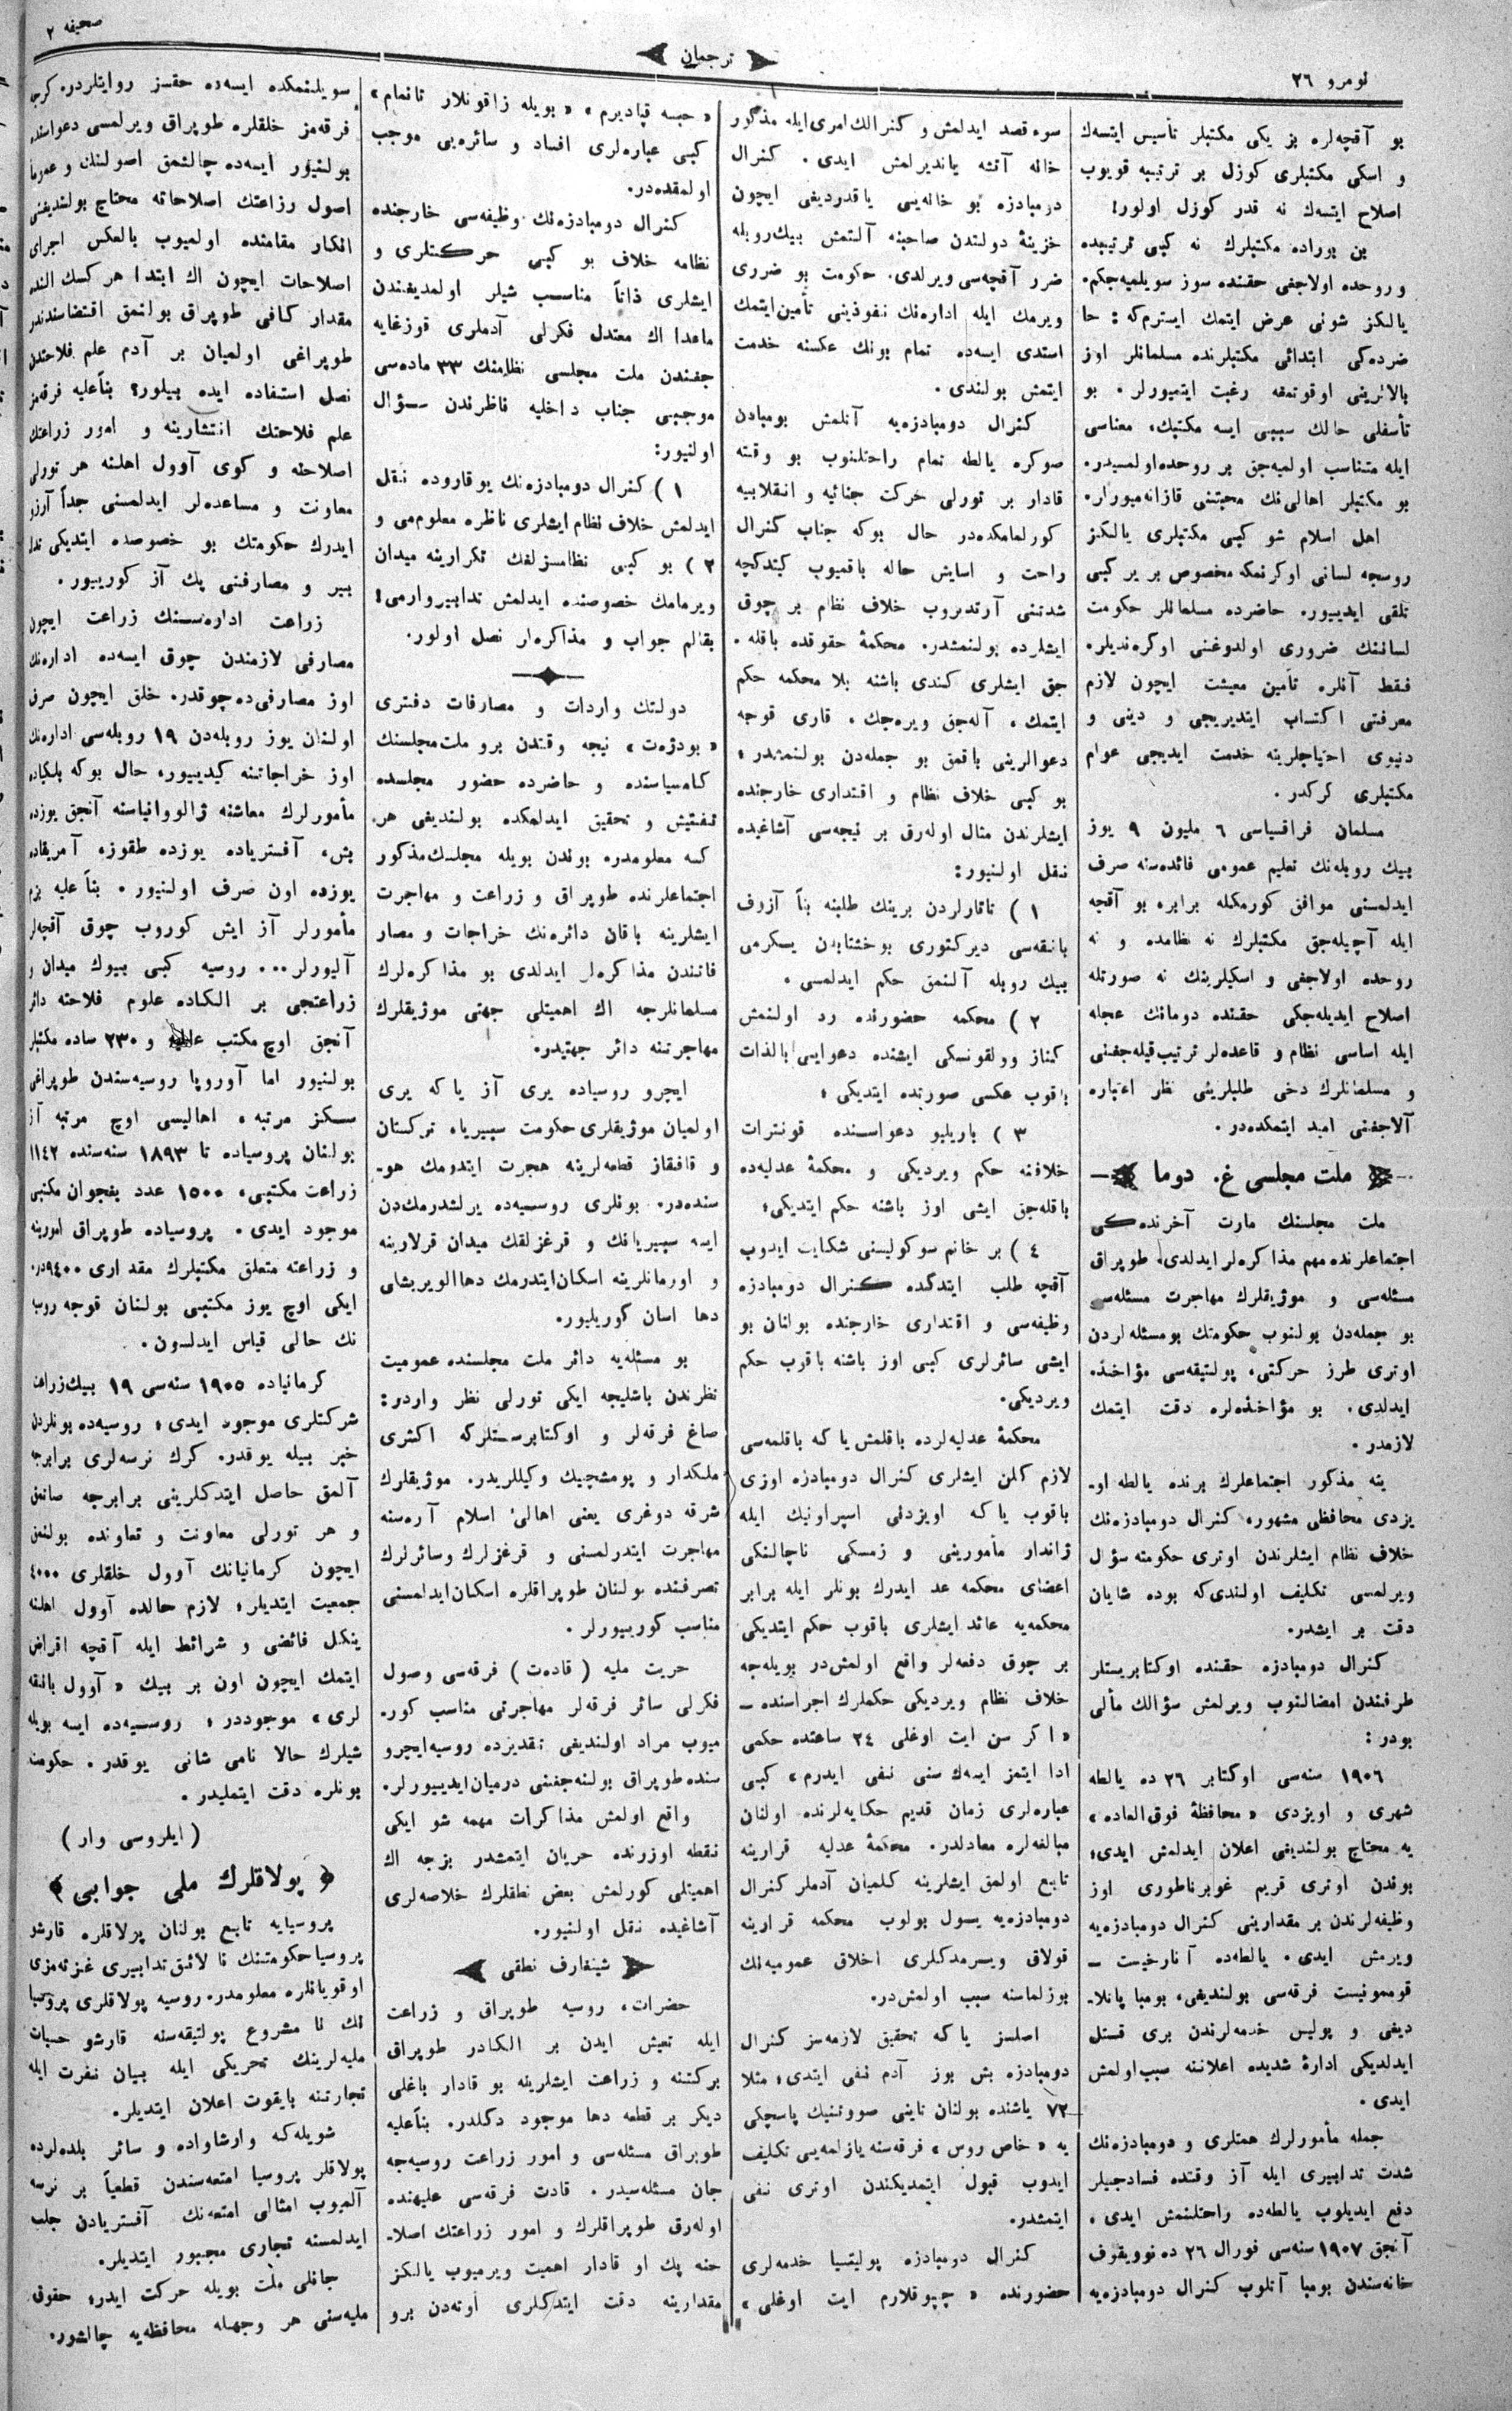 نومرو ٢٦
ترجمان
صحيفه ٢
بو آقچه‌لره بز يكى مكتبلر تأسيس ايتسه‌ك
و اسكى مكتبلرى كوزل بر ترتيبه قويوب
اصلاح ايتسه‌ك نه قدر كوزل اولور!
بن بوراده مكتبلرك نه كبى ترتيبده
و روحده اولاجغى حقنده سوز سويلميه‌جكم.
يالكز شونى عرض ايتمك ايسترم‌كه: حا
ضرده‌كى ابتدائى مكتبلرنده مسلمانلر اوز
بالالرينى اوقوتمغه رغبت ايتميورلر. بو
تأسفلى حالك سببى ايسه مكتبك، معناسى
ايله متناسب اولميه‌جق بر روحده اولمسيدر.
بو مكتبلر اهالى‌نك محبتنى قازانه‌ميورلر.
اهل اسلام شو كبى مكتبلرى يالكز
روسچه لسانى اوكرنمكه مخصوص بر ير كبى
تلقى ايدييور. حاضرده مسلمانلر حكومت
لساننك ضرورى اولدوغنى اوكره‌نديلر.
فقط آنلره تأمين معيشت ايچون لازم
معرفتى اكتساب ايتديريجى و دينى و
دنيوى احتياجلرينه خدمت ايديجى عوام
مكتبلرى كركدر.
مسلمان فراقسياسى ٦ مليون ٩ يوز
بيك روبله‌نك تعليم عمومى فائده‌سنه صرف
ايدلمسنى موافق كورمكله برابره بو آقچه
ايله آچيله‌جق مكتبلرك نه نظامده و نه
روحده اولاجغى و اسكيلرينك نه صورتله
اصلاح ايديله‌جكى حقنده دومانك عجله
ايله اساسى نظام و قاعده‌لر ترتيب قيله‌جغنى
و مسلمانلرك دخى طلبلرينى نظر اعتباره
آلاجغنى اميد ايتمكده‌در.
ملت مجلسى غ. دوما
ملت مجلسنك مارت آخرنده‌كى
اجتماعلرنده مهم مذاكره‌لر ايدلدى. طوپراق
مسئله‌سى و موژيقلرك مهاجرت مسئله‌سى
بو جمله‌دن بولنوب حكومتك بومسئله‌لردن
اوترى طرز حركتى، پولتيقه‌سى مؤاخذه
ايدلدى. بو مؤاخذه‌لره دقت ايتمك
لازمدر.
ينه مذكور اجتماعلرك برنده يالطه او-
يزدى محافظى مشهوره كنرال دومبادزه‌نك
خلاف نظام ايشلرندن اوترى حكومته سؤال
ويرلمسى تكليف اولندى‌كه بوده شايان
دقت بر ايشدر.
كنرال دومبادزه حقنده اوكتابريستلر
طرفندن امضالنوب ويرلمش سؤالك مألى
بودر:
١٩٠٦ سنه‌سى اوكتابر ٢٦ ده يالطه
شهرى و اويزدى «محافظهٔ فوق العاده»
يه محتاج بولنديغى اعلان ايدلمش ايدى؛
بوندن اوترى قريم غوبرناطورى اوز
وظيفه‌لرندن بر مقدارينى كنرال دومبادزه‌يه
ويرمش ايدى. يالطه‌ده آنارخيست –
قوممونيست فرقه‌سى بولنديغى، بومبا پاتلا-
ديغى و پوليس خدمه‌لرندن برى قتل
ايدلديكى ادارهٔ شديده اعلاننه سبب اولمش
ايدى.
جمله مأمورلرك همتلرى و دومبادزه‌نك
شدت تدابيرى ايله آز وقتده فسادجيلر
دفع ايديلوب يالطه‌ده راحتلنمش ايدى.
آنجق ١٩٠٧ سنه‌سى فورال ٢٦ ده نوويقوف
خانه‌سندن بومبا آتلوب كنرال دومبادزه‌يه
سوء قصد ايدلمش و كنرالك امرى ايله مذكور
خانه آتشه يانديرلمش ايدى. كنرال
دومبادزه بو خانه‌يى ياقدرديغى ايچون
خزينهٔ دولتدن صاحبنه آلتمش بيك روبله
ضرر آقچه‌سى ويرلدى. حكومت بو ضررى
ويرمك ايله اداره‌نك نفوذينى تأمين ايتمك
استدى ايسه‌ده تمام بونك عكسنه خدمت
ايتمش بولندى.
كنرال دومبادزه‌يه آتلمش بومبادن
صوكره يالطه تمام راحتلنوب بو وقته
قادار بر تورلى حركت جنائيه و انقلابيه
كورلمامكده‌در حال بوكه جناب كنرال
راحت و اسايش حاله باقميوب كيتدكچه
شدتنى آرتديروب خلاف نظام بر چوق
ايشلرده بولنمشدر. محكمهٔ حقوقده باقله.
جق ايشلرى كندى باشنه بلا محكمه حكم
ايتمك، آله‌جق ويره‌جك، قارى قوجه
دعوالرينى باقمق بو جمله‌دن بولنمشدر؛
بو كبى خلاف نظام و اقتدارى خارجنده
ايشلرندن مثال اوله‌رق بر نيجه‌سى آشاغيده
نقل اولنيور:
١) تاتارلردن برينك طلبنه بنأ آزوف
بانقه‌سى ديركتورى بوخشتابدن يكرمى
بيك روبله آلنمق حكم ايدلمسى.
٢) محكمه حضورنده رد اولنمش
كناز وولقونسكى ايشنده دعوايى بالذات
باقوب عكسى صورتده ايتديكى؛
٣) باريليو دعواسنده قونترات
خلافنه حكم ويرديكى و محكمهٔ عدليه‌ده
باقله‌جق ايشى اوز باشنه حكم ايتديكى؛
٤) بر خانم سوكوليسنى شكايت ايدوب
آقچه طلب ايتدكده كنرال دومبادزه
وظيفه‌سى و اقتدارى خارجنده بولنان بو
ايشى سائرلرى كبى اوز باشنه باقوب حكم
ويرديكى.
محكمهٔ عدليه‌لرده باقلمش ياكه باقلمه‌سى
لازم كلن ايشلرى كنرال دومبادزه اوزى
باقوب ياكه اويزدنى اسپراونيك ايله
ژاندار مأمورينى و زمسكى ناچالنكى
اعضاى محكمه عد ايدرك بونلر ايله برابر
محكمه‌يه عائد ايشلرى باقوب حكم ايتديكى
بر چوق دفعه‌لر واقع اولمش‌در بويله‌جه
خلاف نظام ويرديكى حكملرك اجراسنده –
«اكر سن ايت اوغلى ٢٤ ساعتده حكمى
ادا ايتمز ايسه‌ك سنى نفى ايدرم» كبى
عباره‌لرى زمان قديم حكايه‌لرنده اولنان
مبالغه‌لره معادلدر. محكمهٔ عدليه قرارينه
تابع اولمق ايشلرينه كلميان آدملر كنرال
دومبادزه‌يه يسول بولوب محكمه قرارينه
قولاق ويسرمدكلرى اخلاق عموميه‌نك
بوزلماسنه سبب اولمش‌در.
اصلسز ياكه تحقيق لازمه‌سز كنرال
دومبادزه بش يوز آدم نفى ايتدى؛ مثلا
٧٢ ياشنده بولنان تاينى صووتنيك پاسچكى
يه «خاص روس» فرقه‌سنه يازلمه‌يى تكليف
ايدوب قبول ايتمديكندن اوترى نفى
ايتمشدر.
كنرال دومبادزه پوليتسيا خدمه‌لرى
حضورنده «چپوقلارم ايت اوغلى»
«حبسه قپاديرم» «بويله زاقونلار تانمام»
كبى عباره‌لرى افساد و سائره‌يى موجب
اولمقده‌در.
كنرال دومبادزه‌نك وظيفه‌سى خارجنده
نظامه خلاف بو كبى حركتلرى و
ايشلرى ذاتاً مناسب شيلر اولمديغندن
ماعدا اك معتدل فكرلى آدملرى قوزغايه
جغندن ملت مجلسى نظامنك ٣٣ ماده‌سى
موجبى جناب داخليه ناظرندن سؤال
اولنيور:
١) كنرال دومبادزه‌نك يوقاروده نقل
ايدلمش خلاف نظام ايشلرى ناظره معلوم‌مى و
٢) بو كبى نظامسزلقك تكرارينه ميدان
ويرمامك خصوصنده ايدلمش تدابير وارمى!
بقالم جواب و مذاكره‌لر نصل اولور.
دولتك واردات و مصارفات دفترى
«بودژه‌ت» نيجه وقتدن برو ملت مجلسنك
كاميسياسنده و حاضرده حضور مجلسده
تفتيش و تحقيق ايدلمكده بولنديغى هر.
كسه معلومدره بوندن بويله مجلسك مذكور
اجتماعلرنده طوپراق و زراعت و مهاجرت
ايشلرينه باقان دائره‌نك خراجات و مصار
فاتندن مذاكره‌لر ايدلدى بو مذاكره‌لرك
مسلمانلرجه اك اهميتلى جهتى موژيقلرك
مهاجرتنه دائر جهتيدر.
ايچرو روسياده يرى آز ياكه يرى
اولميان موژيقلرى حكومت سيبيريا، تركستان
و قافقاز قطعه‌لرينه هجرت ايتدرمك هو-
سنده‌در. بونلرى روسيه‌ده يرلشدرمك‌دن
ايسه سيبيريانك و قرغزلقك ميدان قرلارينه
و اورمانلرينه اسكان ايتدرمك دها الويريشلى
دها اسان كوريليور.
بو مسئله‌يه دائر ملت مجلسنده عموميت
نظرندن باشليجه ايكى تورلى نظر واردر:
صاغ فرقه‌لر و اوكتابرستلركه اكثرى
ملكدار و پومشچيك وكيللريدر. موژيقلرك
شرقه دوغرى يعنى اهالىٔ اسلام آره‌سنه
مهاجرت ايتدرلمسنى و قرغزلرك و سائرلرك
تصرفنده بولنان طوپراقلره اسكان ايدلمسنى
مناسب كورييورلر.
حريت مليه (قاده‌ت) فرقه‌سى و صول
فكرلى سائر فرقه‌لر مهاجرتى مناسب كور.
ميوب مراد اولنديغى تقديرده روسيه ايچرو
سنده طوپراق بولنه‌جغنى درميان ايدييورلر.
واقع اولمش مذاكرات مهمه شو ايكى
نقطه اوزرنده جريان ايتمشدر بزجه اك
اهميتلى كورلمش بعض نطقلرك خلاصه‌لرى
آشاغيده نقل اولنيور.
شينغارف نطقى
حضرات، روسيه طوپراق و زراعت
ايله تعيش ايدن بر الكادر طوپراق
بركتنه و زراعت ايشلرينه بو قادار باغلى
ديكر بر قطعه دها موجود دكلدر. بنأعليه
طوپراق مسئله‌سى و امور زراعت روسيه‌جه
جان مسئله‌سيدر. قادت فرقه‌سى عليهنده
اوله‌رق طوپراقلرك و امور زراعتك اصلا-
حنه پك او قادار اهميت ويرميوب يالكز
مقدارينه دقت ايتدكلرى اوته‌دن برو
سويلنمكده ايسه‌ده حقسز روايتلردر. كرچه
فرقه‌مز خلقلره طوپراق ويرلمسى دعواسنده
بولنيور ايسه‌ده چالشمق اصولنك و عموماً
اصول زراعتك اصلاحاته محتاج بولنديغنى
انكار مقامنده اولميوب بالعكس اجراى
اصلاحات ايچون اك ابتدا هر كسك النده
مقدار كافى طوپراق بولنمق اقتضاسندندر
طوپراغى اولميان بر آدم علم فلاحتدن
نصل استفاده ايده بيلور؟ بنأعليه فرقه‌مز
علم فلاحتك انتشارينه و امور زراعتك
اصلاحنه و كوى آوول اهلنه هر تورلى
معاونت و مساعده‌لر ايدلمسنى جداً آرزو
ايدرك حكومتك بو خصوصده ايتديكى تدا
بير و مصارفنى پك آز كورييور.
زراعت اداره‌سنك زراعت ايچون
مصارفى لازمندن چوق ايسه‌ده اداره‌نك
اوز مصارفى‌ده چوقدر. خلق ايچون صرف
اولنان يوز روبله‌دن ١٩ روبله‌سى اداره‌نك
اوز خراجاتنه كيدييور، حال بوكه بلكياده
مأمورلرك معاشنه ژالووانياسنه آنجق يوزده
بش، آفسترياده يوزده طقوز، آمريقاده
يوزده اون صرف اولنيور. بنأعليه بزم
مأمورلر آز ايش كوروب چوق آقچه‌لر
آليورلر... روسيه كبى بيوك ميدان و
زراعتجى بر الكاده علوم فلاحته دائر
آنجق اوچ مكتب عاليه و ٢٣٠ ساده مكتبلر
بولنيور اما آوروپا روسيه‌سندن طوپراغى
سكز مرتبه، اهاليسى اوچ مرتبه آز
بولنان پروسياده تا ١٨٩٣ سنه‌سنده ١١٤٢
زراعت مكتبى، ١٥٠٠ عدد بغجوان مكتبى
موجود ايدى. پروسياده طوپراق امورينه
و زراعته متعلق مكتبلرك مقدارى ٩٤٠٠ در.
ايكى اوچ يوز مكتبى بولنان قوجه روسيه
نك حالى قياس ايدلسون.
كرمانياده ١٩٠٥ سنه‌سى ١٩ بيك زراعت
شركتلرى موجود ايدى؛ روسيه‌ده بونلردن
خبر بيله يوقدر. كرك نرسه‌لرى برابرجه
آلمق حاصل ايتدكلرينى برابرجه صاتمق
و هر تورلى معاونت و تعاونده بولنمق
ايچون كرمانيانك آوول خلقلرى ٤٠٠٠
جمعيت ايتديلر؛ لازم حالده آوول اهلنه
ينكل فائضى و شرائط ايله آقچه اقراض
ايتمك ايچون اون بر بيك «آوول بانقه
لرى» موجوددر؛ روسيه‌ده ايسه بويله
شيلرك حالا نامى شانى يوقدر. حكومت
بونلره دقت ايتمليدر.
(ايلروسى وار)
پولاقلرك ملى جوابى
پروسيايه تابع بولنان پولاقلره قارشو
پروسيا حكومتنك نا لائق تدابيرى غزته‌مزى
اوقويانلره معلومدر. روسيه پولاقلرى پروسيا
نك نا مشروع پولتيقه‌سنه قارشو حسيات
مليه‌لرينك تحريكى ايله بيان نفرت ايله
تجارتنه بايقوت اعلان ايتديلر.
شويله‌كه وارشاواده و سائر بلده‌لرده
پولاقلر پروسيا امتعه‌سندن قطعياً بر نرسه
آلميوب امثالى امتعه‌نك آفستريادن جلب
ايدلمسنه تجارى مجبور ايتديلر.
جانلى ملت بويله حركت ايدر؛ حقوق
مليه‌سنى هر وجهله محافظه‌يه چالشور.